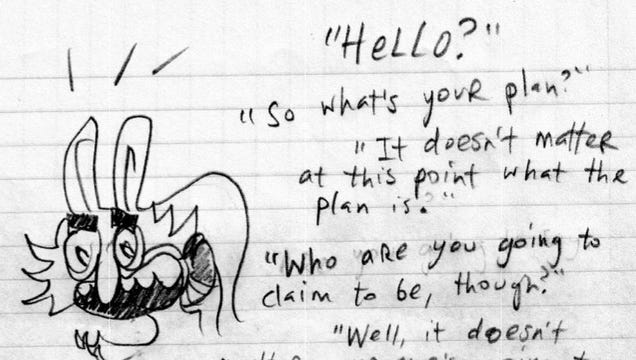 "HELLO?"
"So what's your plan?"
"It doesn't matter
at this point what the
plan is."
"Who are you going to
claim to be, though?"
"Well, it doesn't